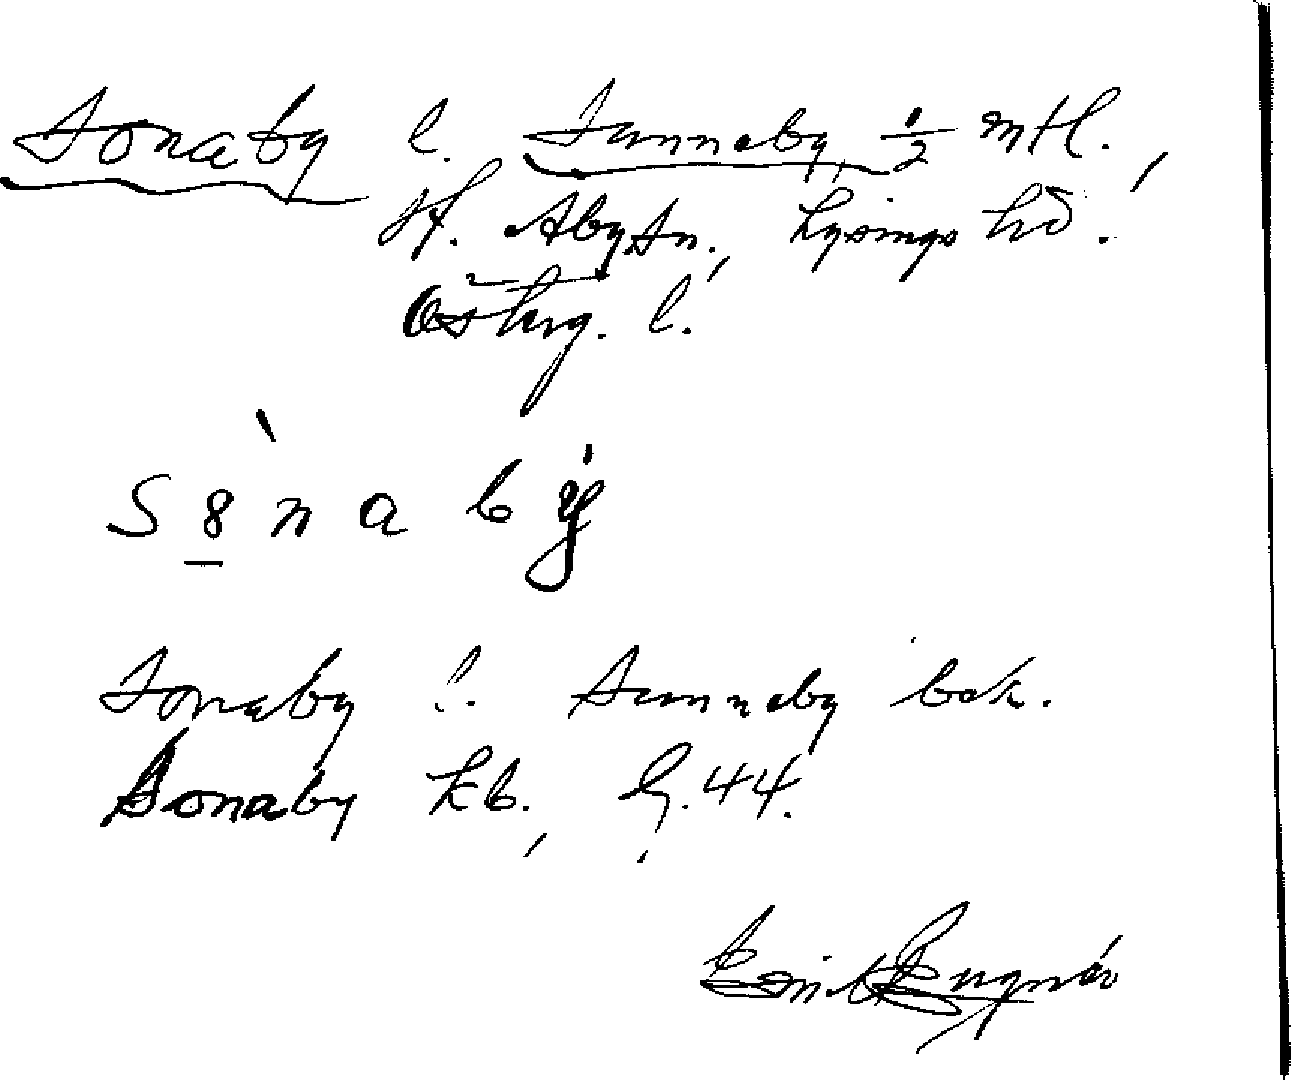 Sonaby l. Sunneby, 1/2 mtl.,
sf. Åby sn., Lysings hd.
Österg. l.
S 8 n a b y
Sonaby l. Sunneby bok.
Sonaby kb.,
Emil